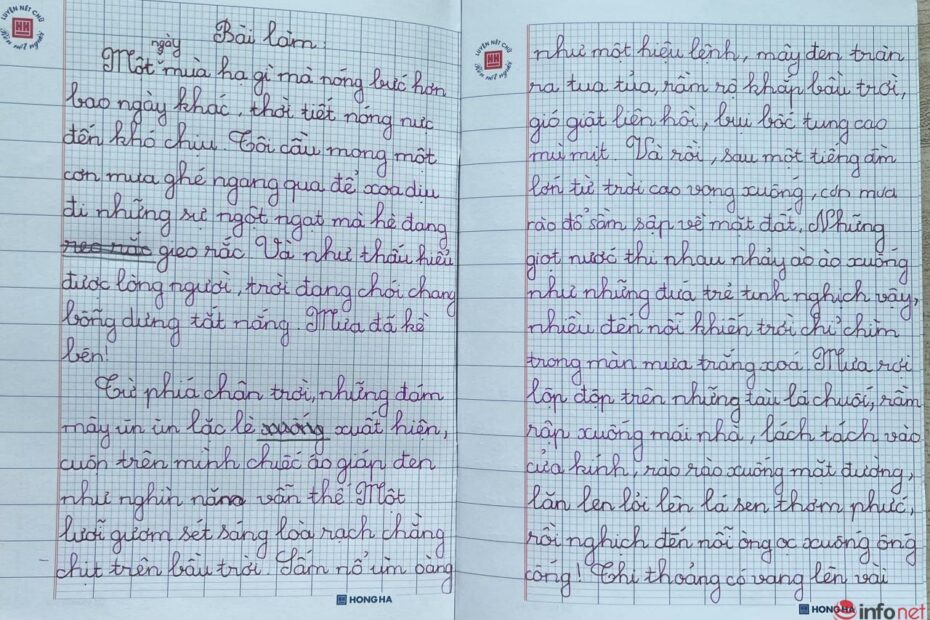 LUYỆN NÉT CHỮ
HH
Rèn nết người
Bài làm:
ngày
Một mùa hạ gì mà nóng bức hơn
bao ngày khác, thời tiết nóng nực
đến khó chịu. Tôi cầu mong một
cơn mưa ghé ngang qua để xoa dịu
đi những sự ngột ngạt mà hè đang
reo rắc gieo rắc. Và như thấu hiểu
được lòng người, trời đang chói chang
bỗng dưng tắt nắng. Mưa đã kề
bên!
Từ phía chân trời, những đám
mây ùn ùn lặc lè xuống xuất hiện,
cuộn trên mình chiếc áo gián đen
như nghìn năm vẫn thế. Một
lưỡi gươm sét sáng loà rạch chằng
chịt trên bầu trời. Sấm nổ ùm oàng
HONG HA
LUYỆN NÉT CHỮ
Rèn nết người
như một hiệu lệnh, mây đen tràn
ra tua tủa, rầm rộ khắp bầu trời,
gió giật liên hồi, bụi bốc tung cao
mù mịt. Và rồi, sau một tiếng ầm
lớn từ trời cao vọng xuống, cơn mưa
rào đổ sầm sập về mặt đất. Những
giọt nước thi nhau nhảy ào ào xuống
như những đứa trẻ tinh nghịch vậy,
nhiều đến nỗi khiến trời chỉ chìm
trong màn mưa trắng xoá. Mưa rơi
lộp độp trên những tàu lá chuối, rầm
rập xuống mái nhà, lách tách vào
cửa kính, rào rào xuống mặt đường,
lăn len lỏi lên lá sen thơm phức,
rồi nghịch đến nỗi òng ọc xuống ống
cống! Thi thoảng có vang lên vài
HONG HA
infonet